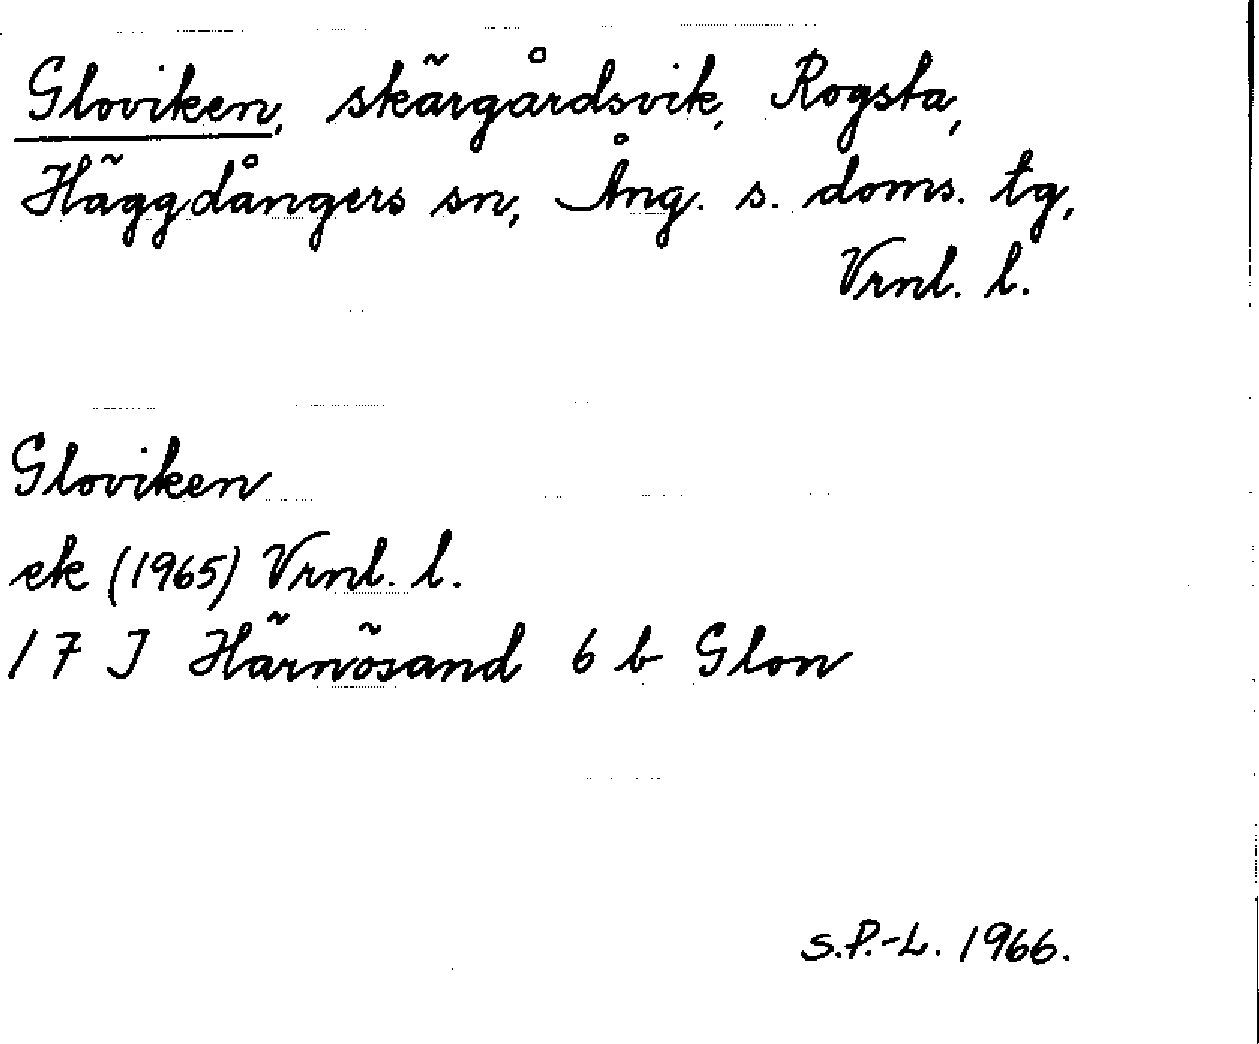 Gloviken, skärgårdsvik, Rogsta,
Häggdångers sn, Ång. s. doms. tg,
Vrnl. l.
Gloviken
ek (1965) Vrnl. l.
17 J Härnösand 6 b Glon
S.P.-L. 1966.